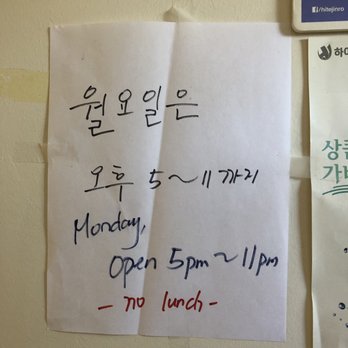 월요일은
오후 5~11까지
Monday,
open 5pm~11pm
- no lunch -
/hitejinro
하이
상쾌
가벼